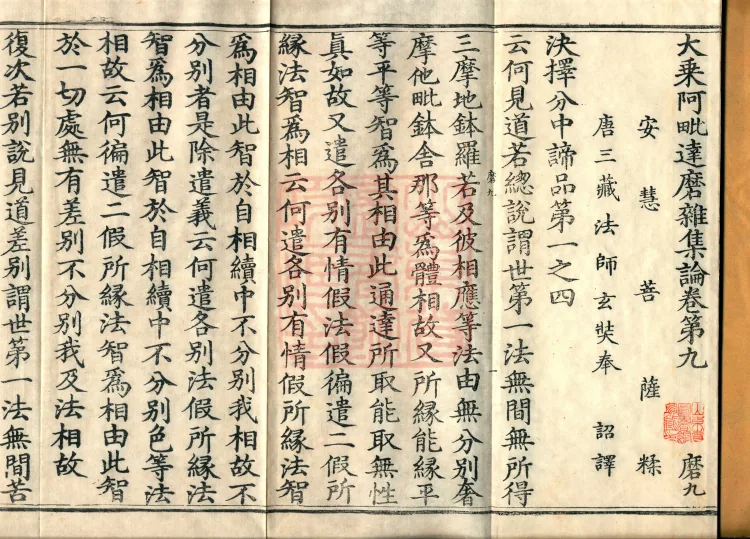 大乘阿毗達磨雜集論卷第九 磨九
安慧菩薩糅
唐三藏法師玄奘奉 詔譯
決擇分中諦品第一之四
云何見道若總說謂世第一法無間無所得
磨九
三摩地鉢羅若及彼相應等法由無分別奢
摩他毗鉢舍那等爲體相故又所緣能緣平
等平等智爲其相由此通達所取能取無性
眞如故又遣各別有情假法假徧遣二假所
緣法智爲相云何遣各別有情假所緣法智
爲相由此智於自相續中不分別我相故不
分別者是除遣義云何遣各別法假所緣法
智爲相由此智於自相續中不分別色等法
相故云何徧遣二假所緣法智爲相由此智
於一切處無有差別不分別我及法相故
復次若別說見道差別謂世第一法無間苦